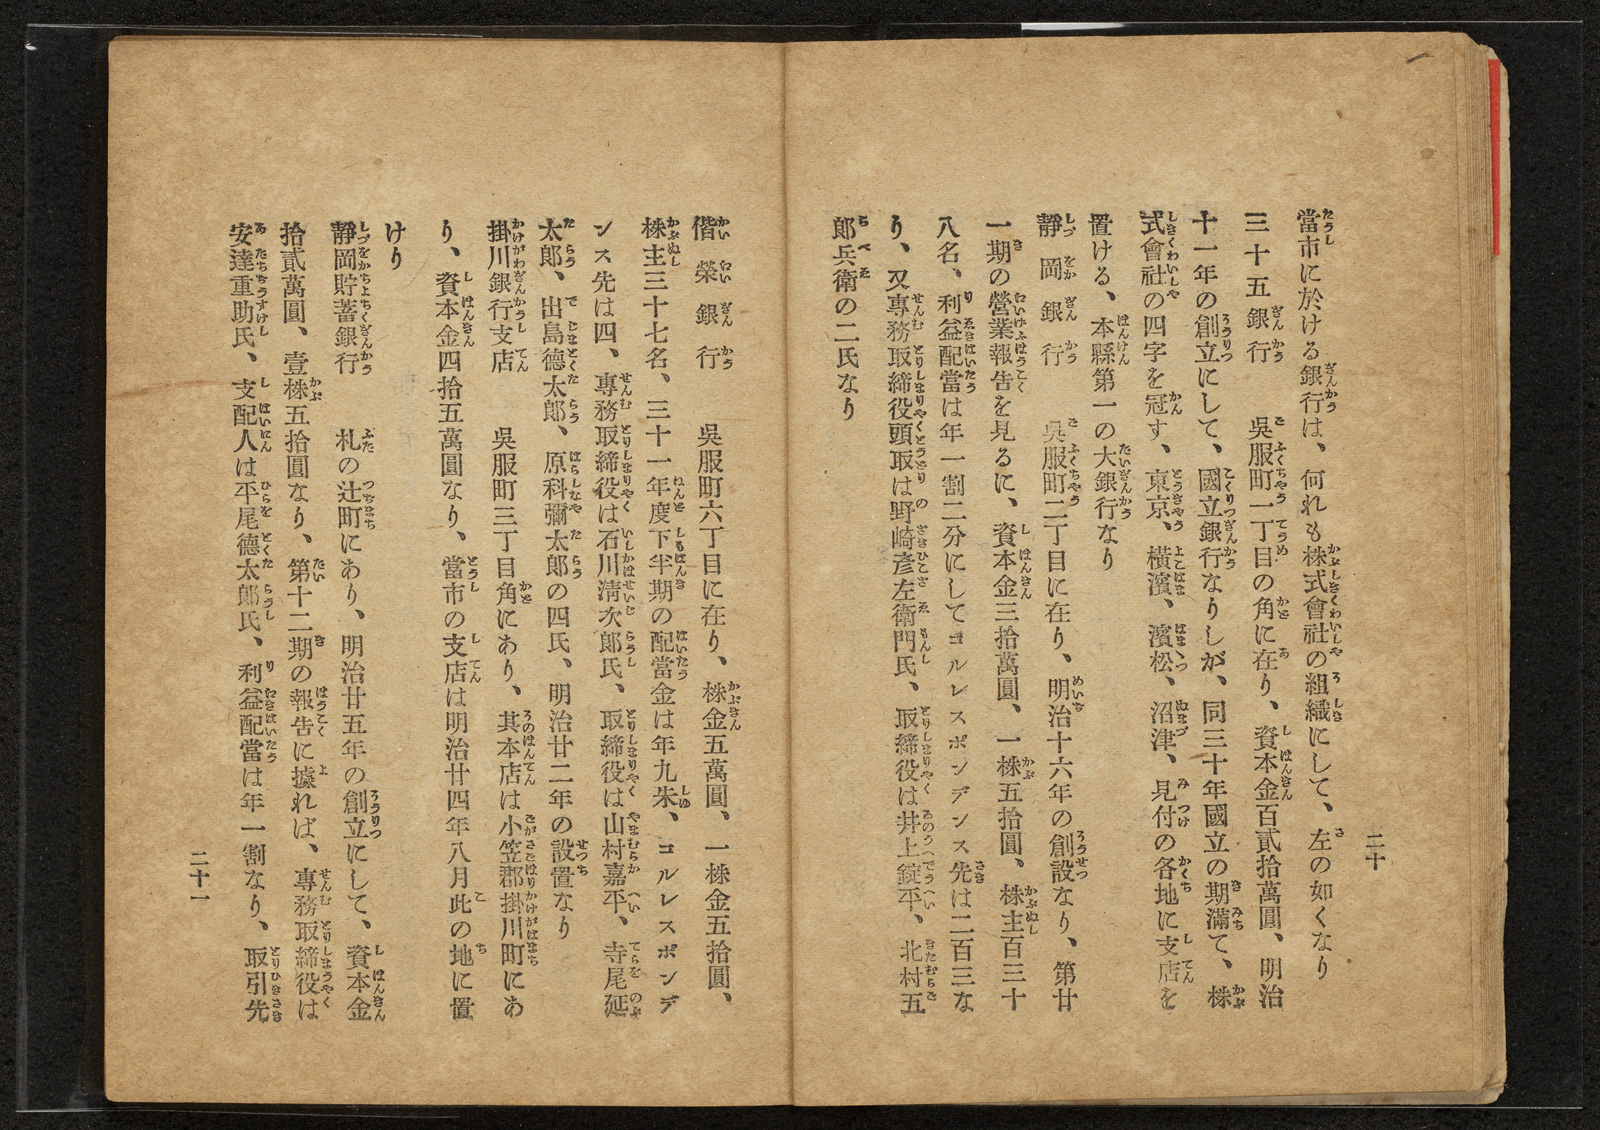 當市に於ける銀行は、何れも株式會社の組織にして、左の如くなり
三十五銀行　呉服町一丁目の角に在り、資本金百貳拾萬圓、明治
十一年の創立にして、國立銀行なりしが、同三十年國立の期滿て、株
式會社の四字を冠す、東京、橫濱、濱松、沼津、見付の各地に支店を
置ける、本縣第一の大銀行なり
靜岡銀行　呉服町二丁目に在り、明治十六年の創設なり、第廿
一期の營業報告を見るに、資本金三拾萬圓、一株五拾圓、株主百三十
八名、利益配當は年一割二分にしてコルレスポンデンス先は二百三な
り、又專務取締役頭取は野崎彦左衛門氏、取締役は井上錠平、北村五
郎兵衛の二氏なり
二十
偕榮銀行　呉服町六丁目に在り、株金五萬圓、一株金五拾圓、
株主三十七名、三十一年度下半期の配當金は年九朱、コルレスポンデ
ンス先は四、專務取締役は石川淸次郎氏、取締役は山村嘉平、寺尾延
太郎、出島德太郎、原科彌太郎の四氏、明治廿二年の設置なり
掛川銀行支店　呉服町三丁目角にあり、其本店は小笠郡掛川町にあ
り、資本金四拾五萬圓なり、當市の支店は明治廿四年八月此の地に置
けり
靜岡貯蓄銀行　札の辻町にあり、明治廿五年の創立にして、資本金
拾貳萬圓、壹株五拾圓なり、第十二期の報告に據れば、專務取締役は
安達重助氏、支配人は平尾德太郎氏、利益配當は年一割なり、取引先
二十一